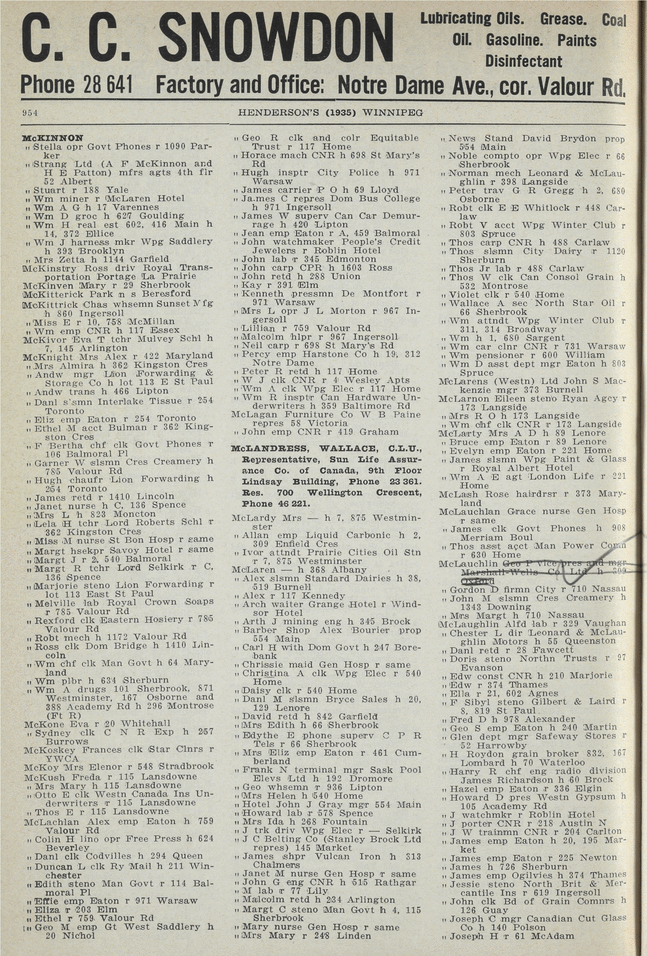 C. C. SNOWDON
Lubricating Oils. Grease. Coal
Oil. Gasoline. Paints
Disinfectant
Phone 28 641 Factory and Office: Notre Dame Ave., cor. Valour Rd.
954
HENDERSON'S (1935) WINNIPEG
McKINNON
" Stella opr Govt Phones r 1090 Parker
" Strang Ltd (A F McKinnon and
H E Patton) mfrs agts 4th flr
52 Albert
" Stuart r 188 Yale
" Wm miner r McLaren Hotel
" Wm A G h 17 Varennes
" Wm D groc h 627 Goulding
" Wm H real est 602, 416 Main h
14, 372 Ellice
" Wm J harness mkr Wpg Saddlery
h 393 Brooklyn
" Mrs Zetta h 1144 Garfield
McKinstry Ross driv Royal Transportation Portage La Prairie
McKinven Mary r 29 Sherbrook
McKitterick Park n s Beresford
McKittrick Chas whsemn Sunset Mfg
h 860 Ingersoll
" Miss E r 10, 758 McMillan
" Wm emp CNR h 117 Essex
McKivor Eva T tchr Mulvey Schl h
7, 145 Arlington
McKnight Mrs Alex r 422 Maryland
" Mrs Almira h 362 Kingston Cres
" Andw mgr Lion Forwarding &
Storage Co h lot 113 E St Paul
" Andw trans h 466 Lipton
" Danl slsmn Interlake Tissue r 254
Toronto
" Eliz emp Eaton r 254 Toronto
" Ethel M acct Bulman r 362 Kingston Cres
" F Bertha chf clk Govt Phones r
106 Balmoral Pl
" Garner W slsmn Cres Creamery h
785 Valour Rd
" Hugh chaufr Lion Forwarding h
254 Toronto
" James retd r 1410 Lincoln
" Janet nurse h C, 136 Spence
" Mrs L h 823 Moncton
" Lela H tchr Lord Roberts Schl r
362 Kingston Cres
" Miss M nurse St Bon Hosp r same
" Margt hsekpr Savoy Hotel r same
" Margt J r 2, 540 Balmoral
" Margt R tchr Lord Selkirk r C,
136 Spence
" Marjorie steno Lion Forwarding r
lot 113 East St Paul
" Melville lab Royal Crown Soaps
r 785 Valour Rd
" Rexford clk Eastern Hosiery r 785
Valour Rd
" Robt mech h 1172 Valour Rd
" Ross clk Dom Bridge h 1410 Lincoln
" Wm chf clk Man Govt h 64 Maryland
" Wm plbr h 634 Sherburn
" Wm A drugs 101 Sherbrook, 871
Westminster, 167 Osborne and
388 Academy Rd h 296 Montrose
(Ft R)
McKone Eva r 20 Whitehall
" Sydney clk C N R Exp h 257
Burrows
McKoskey Frances clk Star Clnrs r
YWCA
McKoy Mrs Elenor r 548 Stradbrook
McKush Freda r 115 Lansdowne
" Mrs Mary h 115 Lansdowne
" Otto E clk Westn Canada Ins Underwriters r 115 Lansdowne
" Thos E r 115 Lansdowne
McLachlan Alex emp Eaton h 759
Valour Rd
" Colin H lino opr Free Press h 624
Beverley
" Danl clk Codvilles h 294 Queen
" Duncan L clk Ry Mail h 211 Winchester
" Edith steno Man Govt r 114 Balmoral Pl
" Effie emp Eaton r 971 Warsaw
" Eliza r 203 Elm
" Ethel r 759 Valour Rd
" Geo M emp Gt West Saddlery h
20 Nichol
" Geo R clk and colr Equitable
Trust r 117 Home
" Horace mach CNR h 698 St Mary's
Rd
" Hugh insptr City Police h 971
Warsaw
" James carrier P O h 69 Lloyd
" James C repres Dom Bus College
h 971 Ingersoll
" James W superv Can Car Demurrage h 420 Lipton
" Jean emp Eaton r A, 459 Balmoral
" John watchmaker People's Credit
Jewelers r Roblin Hotel
" John lab r 345 Edmonton
" John carp CPR h 1603 Ross
" John retd h 288 Union
" Kay r 391 Elm
" Kenneth pressmn De Montfort r
971 Warsaw
" Mrs L opr J L Morton r 967 Ingersoll
" Lillian r 759 Valour Rd
" Malcolm hlpr r 967 Ingersoll
" Neil carp r 698 St Mary's Rd
" Percy emp Harstone Co h 19, 312
Notre Dame
" Peter R retd h 117 Home
" W J clk CNR r 4 Wesley Apts
" Wm A clk Wpg Elec r 117 Home
" Wm R insptr Can Hardware Underwriters h 359 Baltimore Rd
McLagan Furniture Co W B Paine
repres 58 Victoria
" John emp CNR r 419 Graham
McLANDRESS, WALLACE, C.L.U.,
Representative, Sun Life Assurance Co. of Canada, 9th Floor
Lindsay Building, Phone 23 361.
Res. 700 Wellington Crescent,
Phone 46 221.
McLardy Mrs — h 7, 875 Westminster
" Allan emp Liquid Carbonic h 2,
309 Enfield Cres
" Ivor attndt Prairie Cities Oil Stn
r 7, 875 Westminster
McLaren — h 368 Albany
" Alex slsmn Standard Dairies h 38,
519 Burnell
" Alex r 117 Kennedy
" Arch waiter Grange Hotel r Windsor Hotel
" Arth J mining eng h 345 Brock
" Barber Shop Alex Bourier prop
554 Main
" Carl H with Dom Govt h 247 Borebank
" Chrissie maid Gen Hosp r same
" Christina A clk Wpg Elec r 540
Home
" Daisy clk r 540 Home
" Danl M slsmn Bryce Sales h 20,
129 Lenore
" David retd h 842 Garfield
" Mrs Edith h 66 Sherbrook
" Edythe E phone superv C P R
Tels r 66 Sherbrook
" Mrs Eliz emp Eaton r 461 Cumberland
" Frank N terminal mgr Sask Pool
Elevs Ltd h 192 Dromore
" Geo whsemn r 936 Lipton
" Mrs Helen h 540 Home
" Hotel John J Gray mgr 554 Main
" Howard lab r 578 Spence
" Mrs Ida h 268 Fountain
" J trk driv Wpg Elec r — Selkirk
" J C Belting Co (Stanley Brock Ltd
repres) 145 Market
" James shpr Vulcan Iron h 313
Chalmers
" Janet M nurse Gen Hosp r same
" John G eng CNR h 515 Rathgar
" M lab r 77 Lily
" Malcolm retd h 234 Arlington
" Margt C steno Man Govt h 4, 115
Sherbrook
" Mary nurse Gen Hosp r same
" Mrs Mary r 248 Linden
" News Stand David Brydon prop
554 Main
" Noble compto opr Wpg Elec r 66
Sherbrook
" Norman mech Leonard & McLaughlin r 398 Langside
" Peter trav G R Gregg h 2, 680
Osborne
" Robt clk E E Whitlock r 448 Carlaw
" Robt V acct Wpg Winter Club r
803 Spruce
" Thos carp CNR h 488 Carlaw
" Thos slsmn City Dairy r 1120
Sherburn
" Thos Jr lab r 488 Carlaw
" Thos W clk Can Consol Grain h
532 Montrose
" Violet clk r 540 Home
" Wallace A sec North Star Oil r
66 Sherbrook
" Wm attndt Wpg Winter Club r
311, 314 Broadway
" Wm h 1, 680 Sargent
" Wm car clnr CNR r 731 Warsaw
" Wm pensioner r 600 William
" Wm D asst dept mgr Eaton h 803
Spruce
McLarens (Westn) Ltd John S Mackenzie mgr 373 Burnell
McLarnon Eileen steno Ryan Agcy r
173 Langside
" Mrs R O h 173 Langside
" Wm chf clk CNR r 173 Langside
McLarty Mrs A D h 89 Lenore
" Bruce emp Eaton r 89 Lenore
" Evelyn emp Eaton r 221 Home
" James slsmn Wpg Paint & Glass
r Royal Albert Hotel
" Wm A E agt London Life r 221
Home
McLash Rose hairdrsr r 373 Maryland
McLauchlan Grace nurse Gen Hosp
r same
" James clk Govt Phones h 908
Merriam Boul
" Thos asst acct Man Power Comn
r 630 Home
McLauchlin Geo P vice pres and mgr
Marshall-Wells Co Ltd h 309
Oxford
" Gordon D firmn City r 710 Nassau
" John M slsmn Cres Creamery h
1343 Downing
" Mrs Margt h 710 Nassau
McLaughlin Alfd lab r 329 Vaughan
" Chester L dir Leonard & McLaughlin Motors h 55 Queenston
" Danl retd r 28 Fawcett
" Doris steno Northn Trusts r 97
Evanson
" Edw const CNR h 210 Marjorie
" Edw r 374 Thames
" Ella r 21, 602 Agnes
" F Sibyl steno Gilbert & Laird r
8, 819 St Paul
" Fred D h 978 Alexander
" Geo S emp Eaton h 240 Martin
" Glen dept mgr Safeway Stores r
52 Harrowby
" H Roydon grain broker 832, 167
Lombard h 70 Waterloo
" Harry R chf eng radio division
James Richardson h 60 Brock
" Hazel emp Eaton r 336 Elgin
" Howard D pres Westn Gypsum h
105 Academy Rd
" J watchmkr r Roblin Hotel
" J porter CNR r 218 Austin N
" J W trainmn CNR r 204 Carlton
" James emp Eaton h 20, 195 Market
" James emp Eaton r 225 Newton
" James h 726 Sherburn
" James emp Ogilvies h 374 Thames
" Jessie steno North Brit & Mercantile Ins r 619 Ingersoll
" John clk Bd of Grain Comnrs h
126 Guay
" Joseph C mgr Canadian Cut Glass
Co h 140 Polson
" Joseph H r 61 McAdam